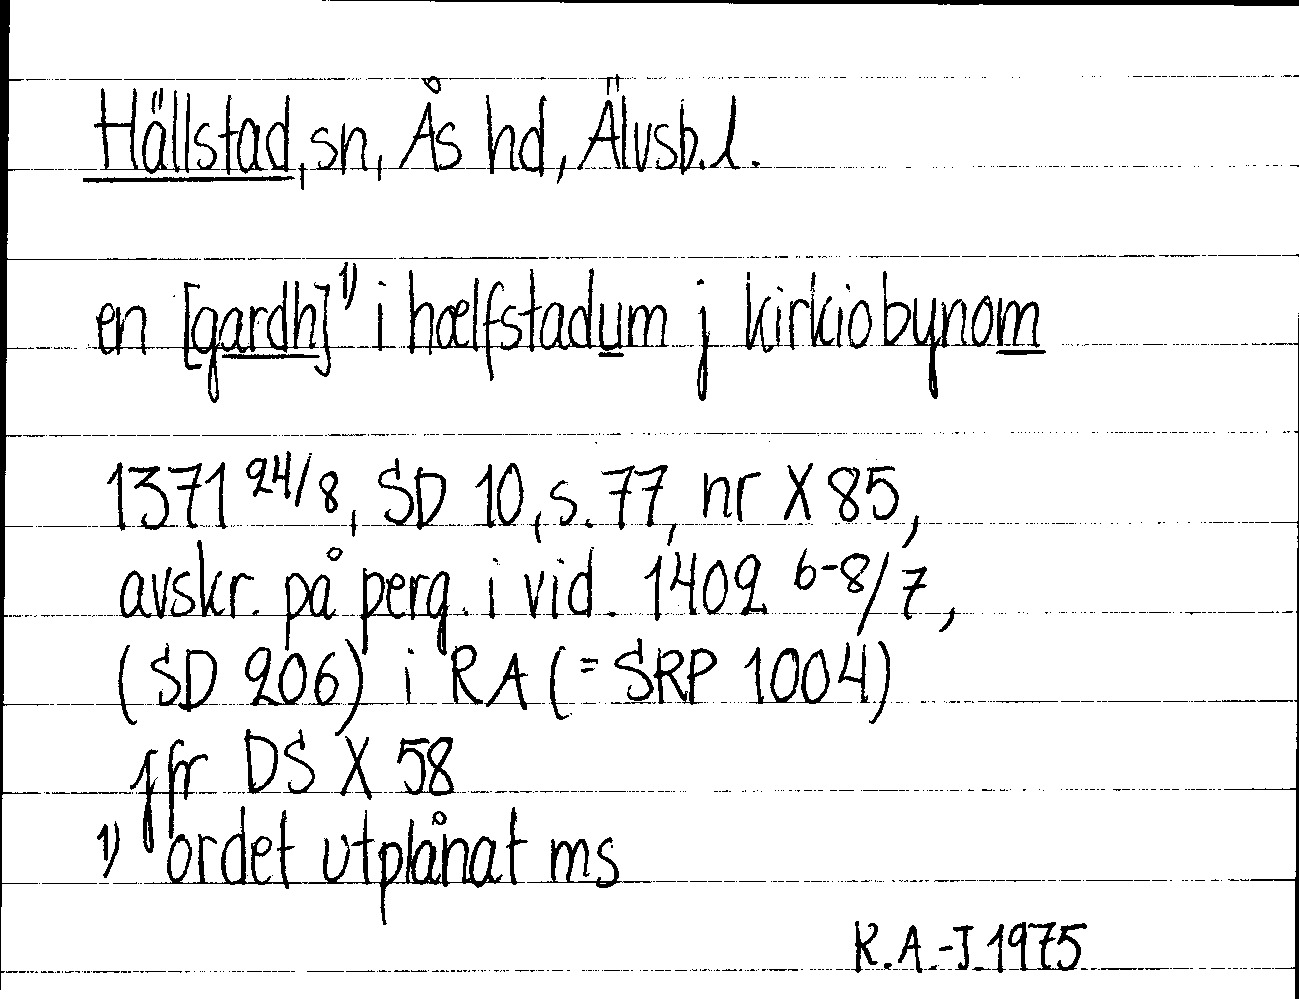 Hällstad, sn, Ås hd, Älvsb. l.
en [gardh]¹⁾ i hælfstadum j kirkiobynom
1371 24/8, SD 10, s. 77, nr X 85,
avskr. på perg. i vid. 1402 6-8/7,
(SD 206) i RA (= SRP 1004)
jfr DS X 58
1) ordet utplånat ms
K.A.-J. 1975